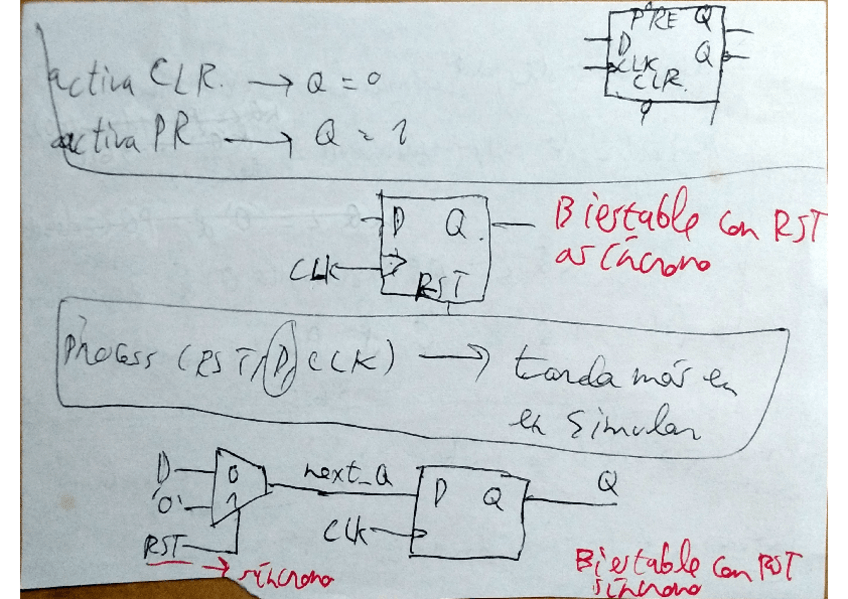 PRE Q
D
CLK Q
CLR.
activa CLR. → Q = 0
activa PR → Q = 1
D Q.
CLK
RST
Biestable con RST
asíncrono
Process (RST, D, CLK) → tarda más en
en simular
D 0
'0' 1
RST → síncrono
next_Q
D Q
CLK
Q
Biestable con RST
síncrono